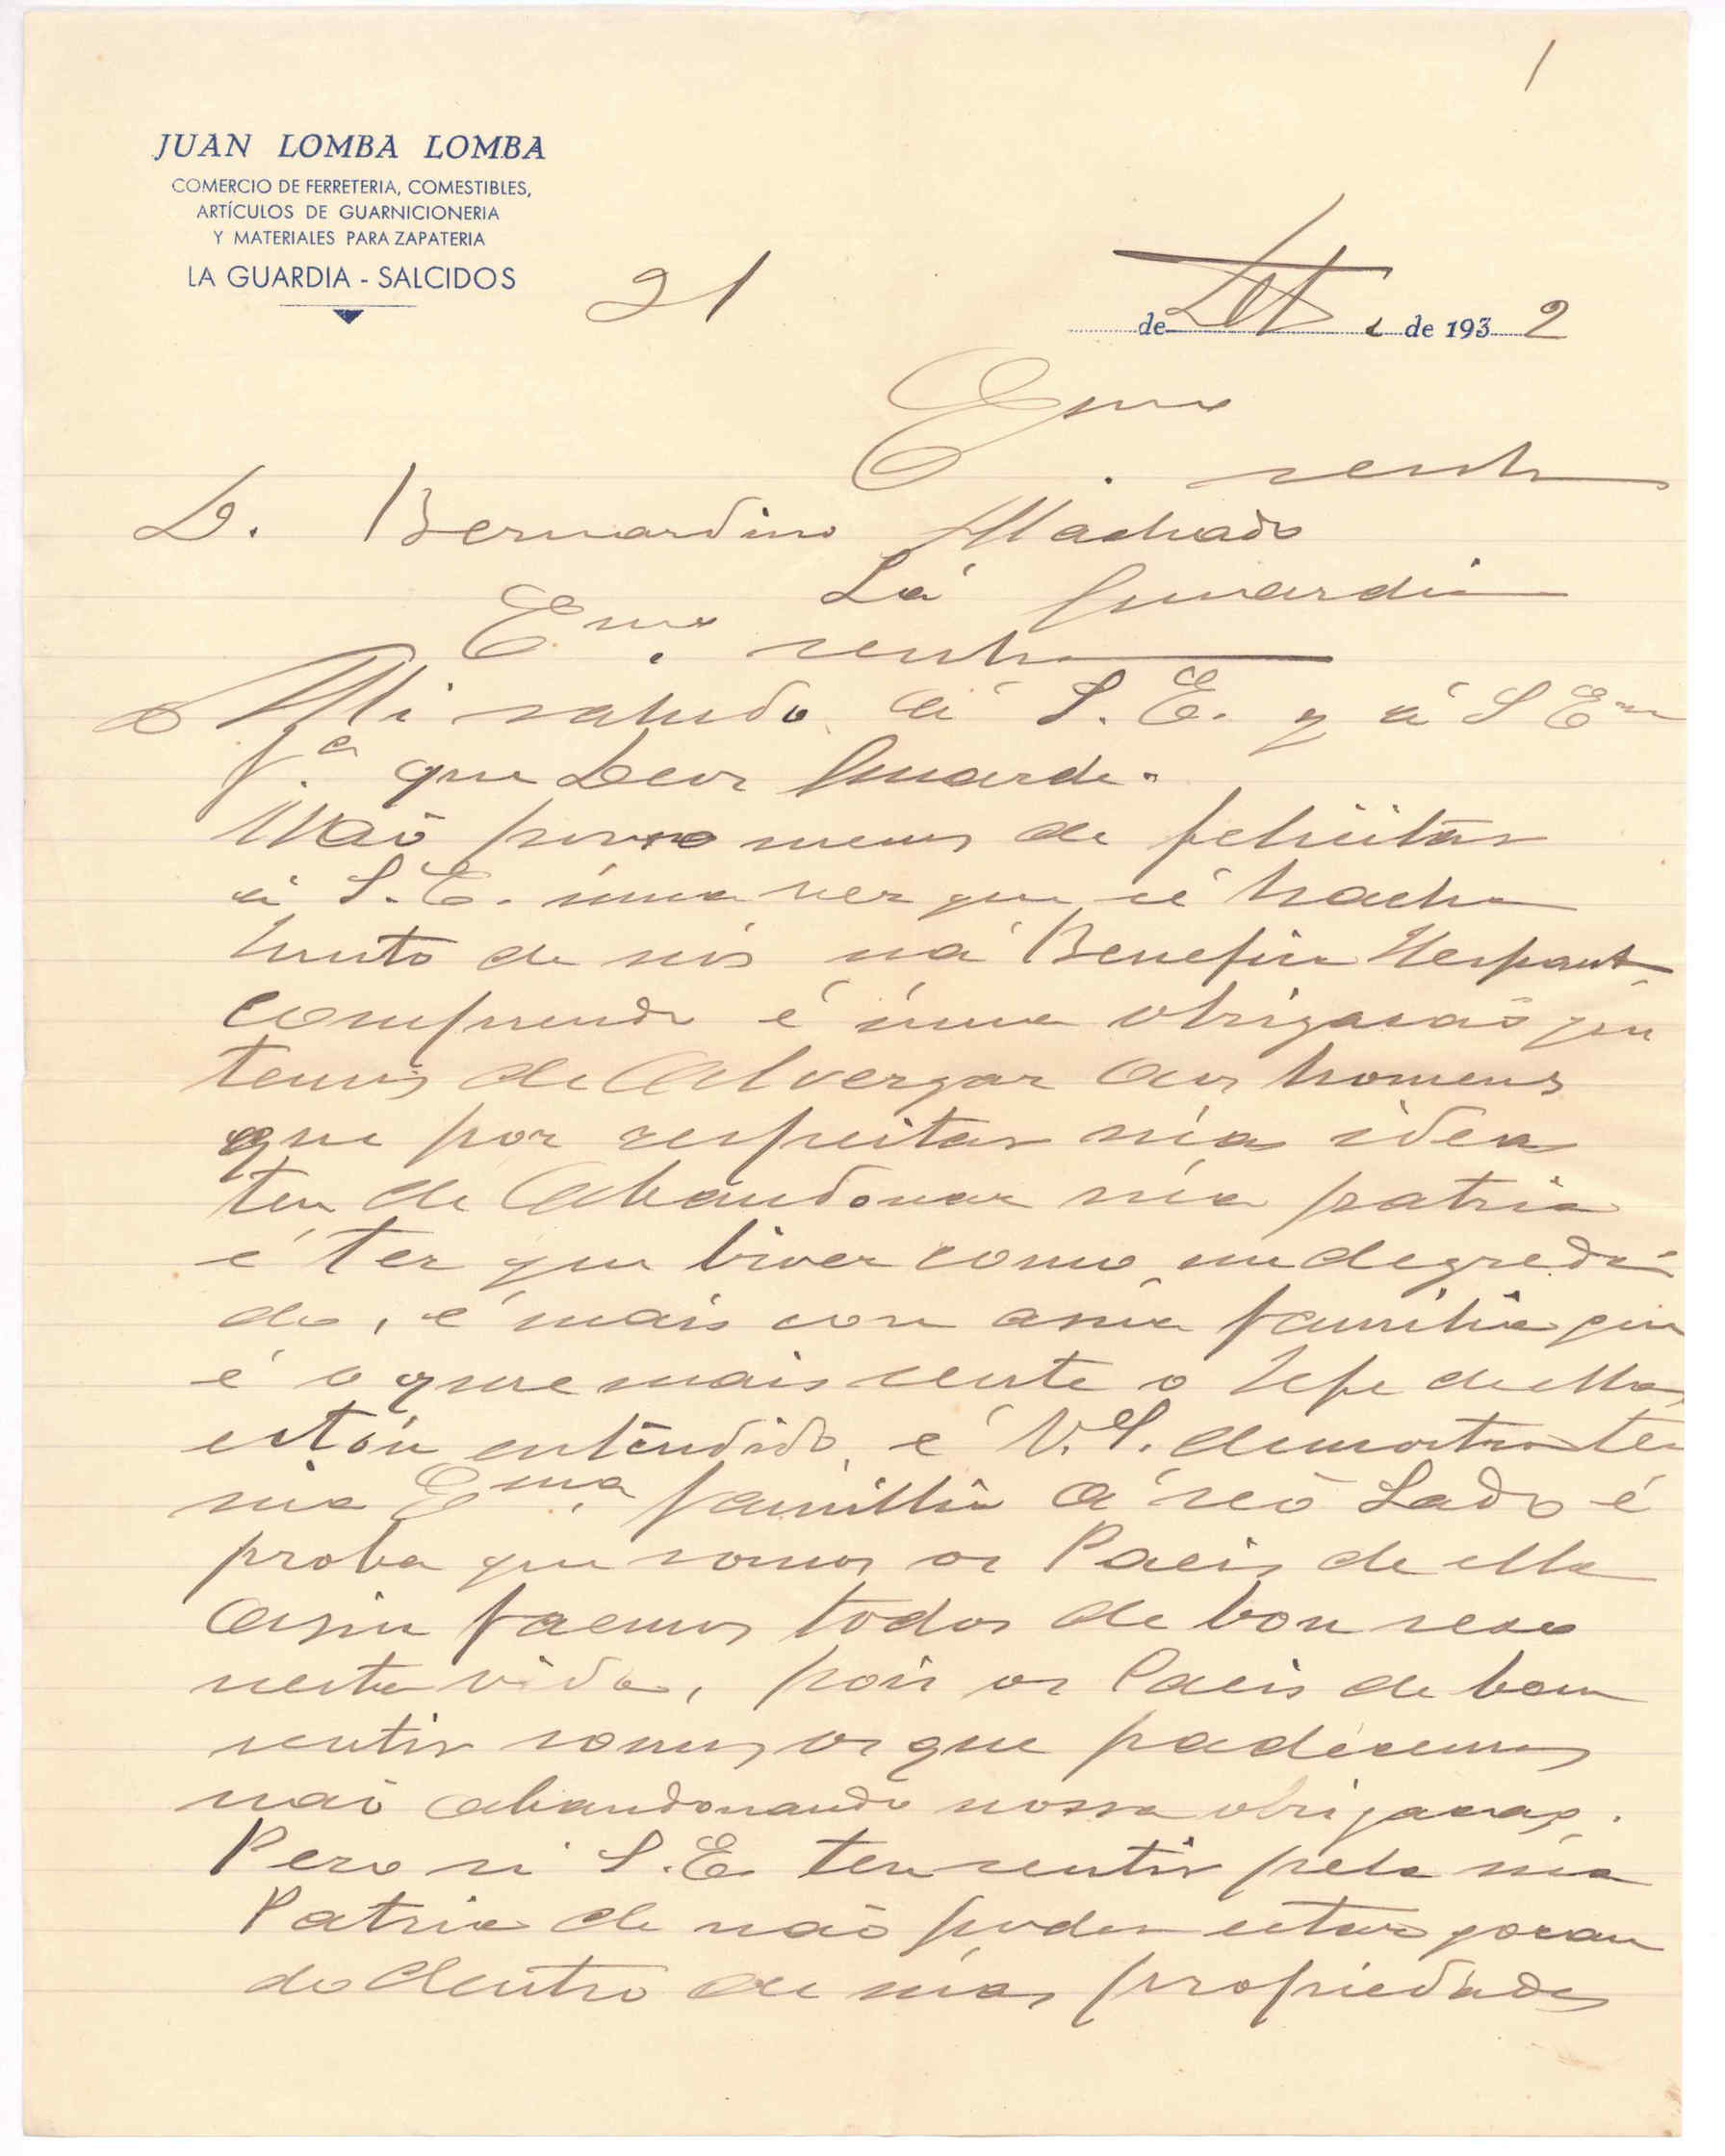 1
JUAN LOMBA LOMBA
COMERCIO DE FERRETERIA, COMESTIBLES,
ARTÍCULOS DE GUARNICIONERIA
Y MATERIALES PARA ZAPATERIA
LA GUARDIA - SALCIDOS
21 de de 1932
Emo
D. Bernardino Machado
Lá Guardia
Emo
Mi saludo á S. E. y á S Ema
f.a que Deos Guarde.
Naõ menos de felicitar
á S. E. úma vez que sé hacha
hunto de nós ná
comprendo é úma obrigacaõ que
temos de Alvergar aos homens
que por respeitar súa idea
ten de Abandonar súa patria
é ter que biver como un degreda
do, é mais con a súa familia que
é o que mais sente o Jefe de ella
están entendido, é V.S. demostra ten
sua Ema familia á seõ Lado é
proba que somos os Paeis de ella
asin faemos todos de bon seso
nesta vida, pois os Paeis de bom
sentir somos os que padécemos
naõ abandonando nossa obrigacaõ.
Pero si S. E. ten sentir pela súa
Patria de naõ poder estar gozan
do dentro de súas propiedades